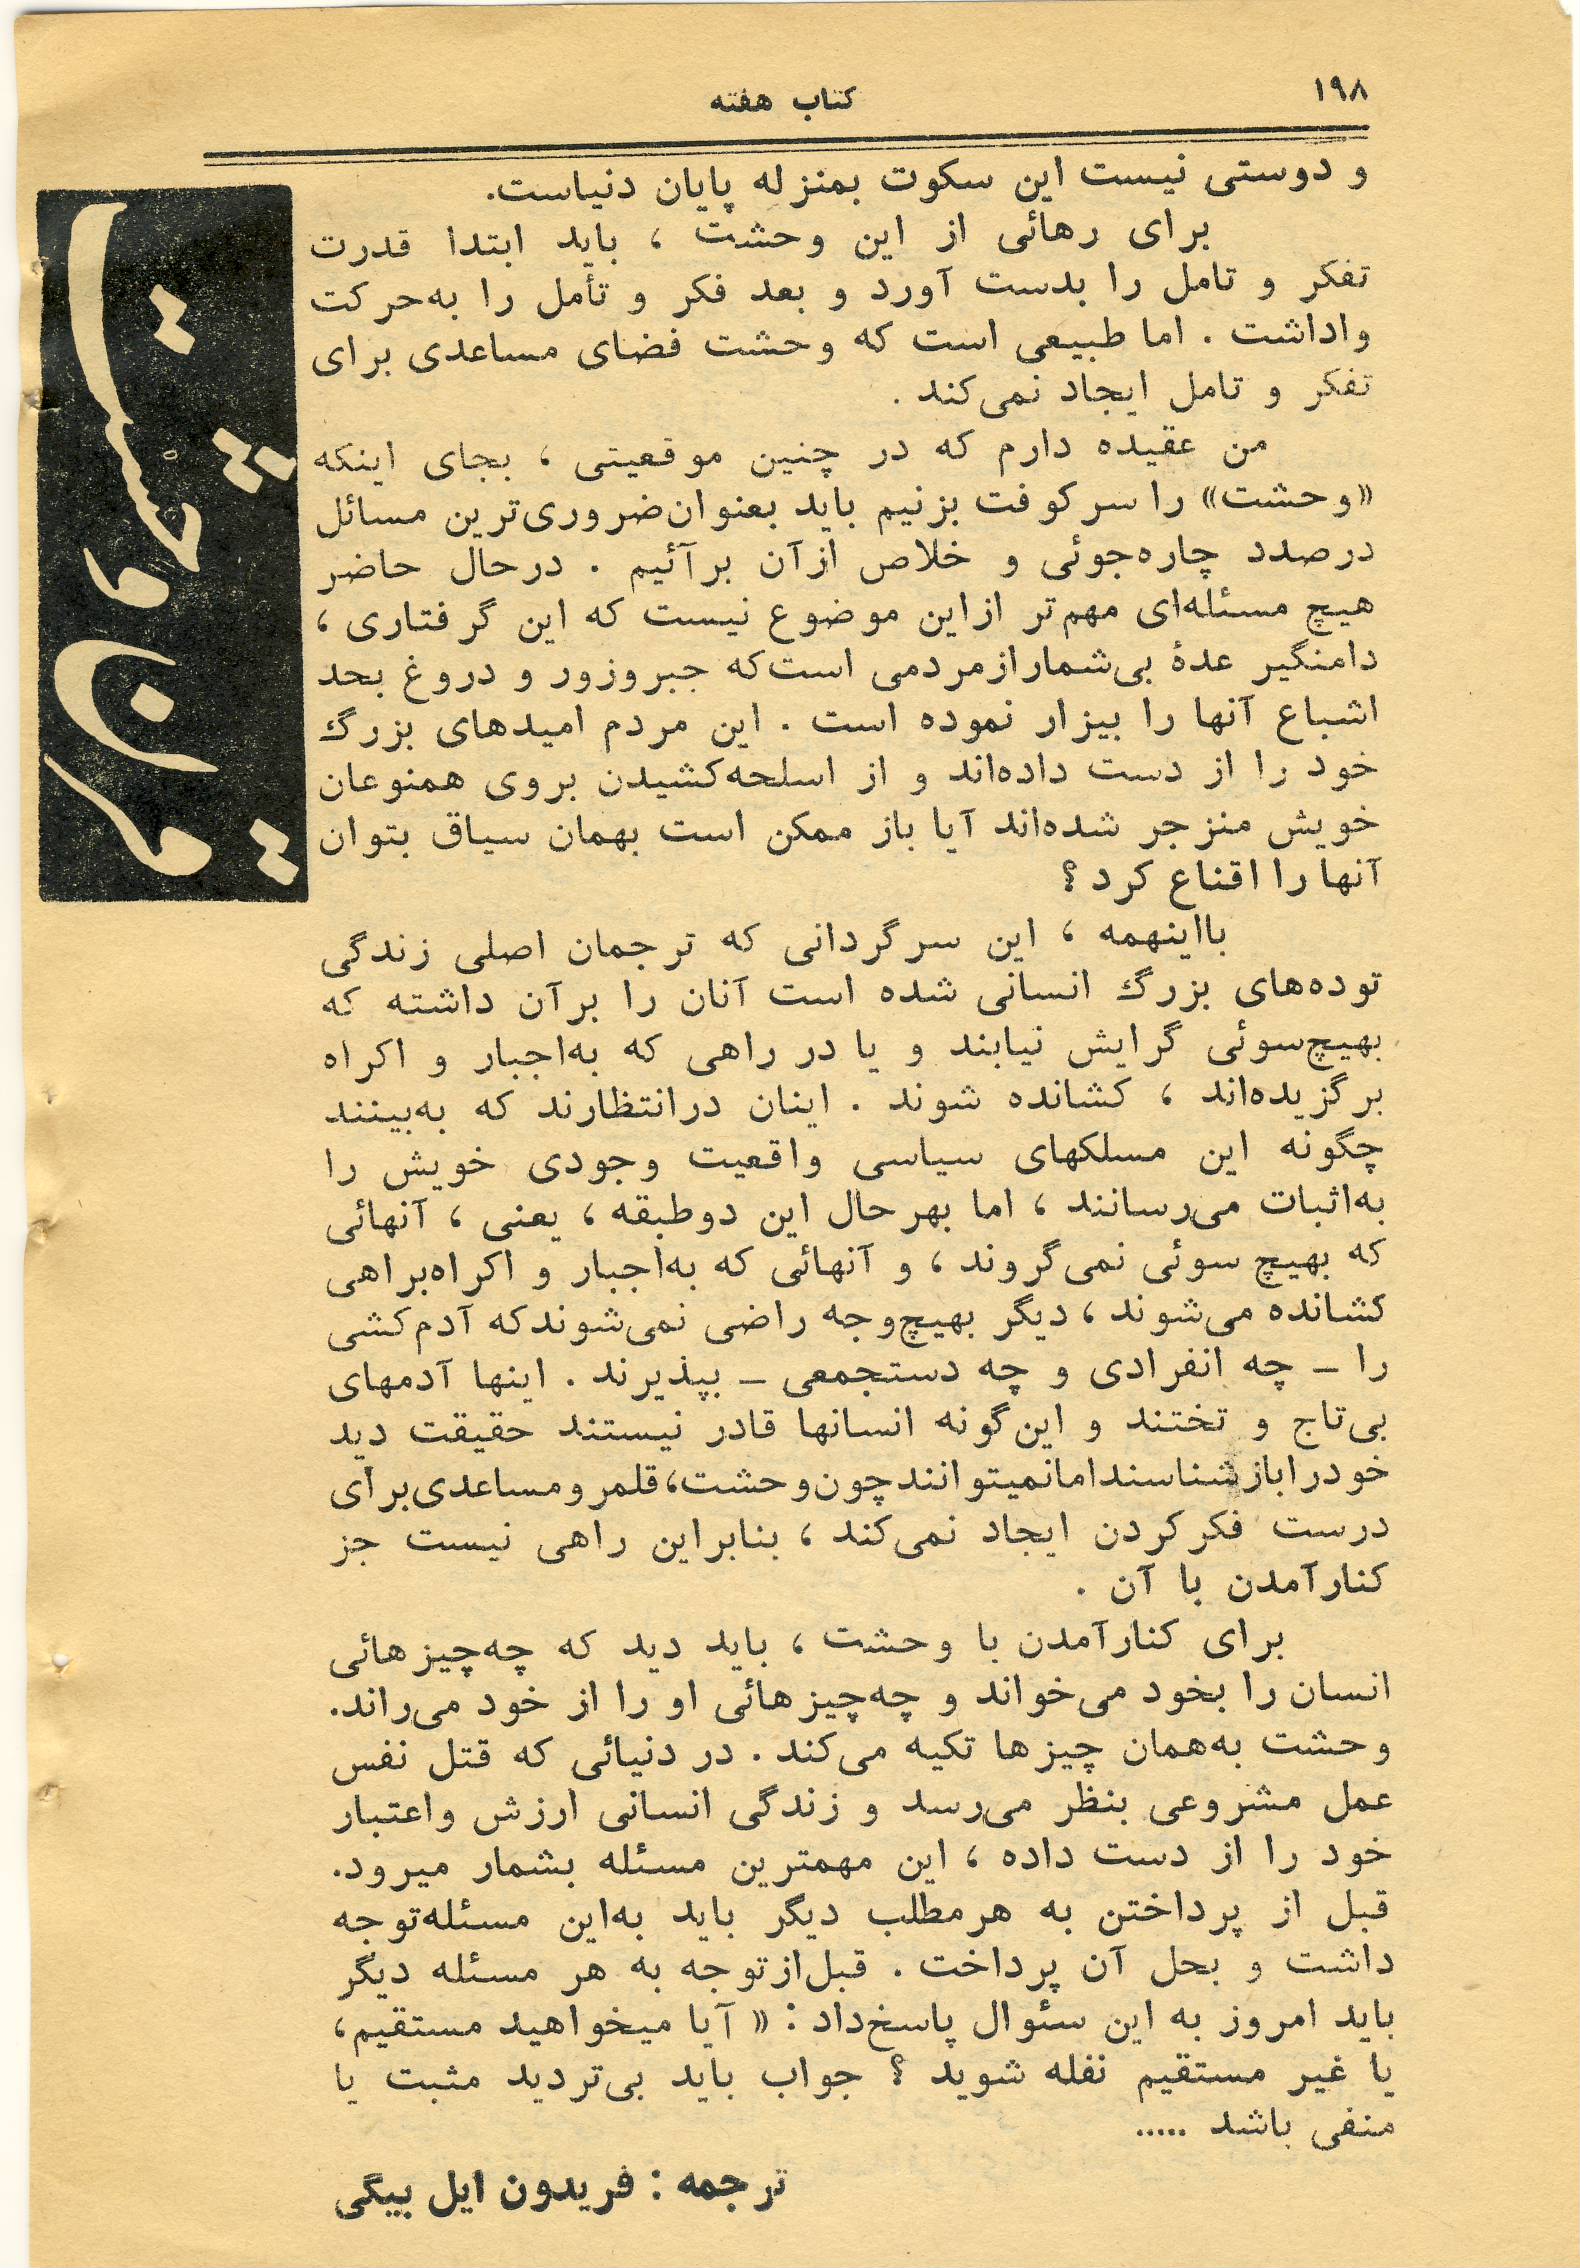 ۱۹۸
کتاب هفته
و دوستی نیست این سکوت بمنزله پایان دنیاست.
برای رهائی از این وحشت ، باید ابتدا قدرت
تفکر و تامل را بدست آورد و بعد فکر و تأمل را به‌حرکت
واداشت . اما طبیعی است که وحشت فضای مساعدی برای
تفکر و تامل ایجاد نمی‌کند .
من عقیده دارم که در چنین موقعیتی ، بجای اینکه
«وحشت» را سرکوفت بزنیم باید بعنوان‌ضروری‌ترین مسائل
درصدد چاره‌جوئی و خلاص ازآن برآئیم . درحال حاضر
هیچ مسئله‌ای مهم‌تر ازاین موضوع نیست که این گرفتاری ،
دامنگیر عدهٔ بی‌شمارازمردمی است‌که جبروزور و دروغ بحد
اشباع آنها را بیزار نموده است . این مردم امیدهای بزرگ
خود را از دست داده‌اند و از اسلحه‌کشیدن بروی همنوعان
خویش منزجر شده‌اند آیا باز ممکن است بهمان سیاق بتوان
آنها را اقناع کرد ؟
بااینهمه ، این سرگردانی که ترجمان اصلی زندگی
توده‌های بزرگ انسانی شده است آنان را برآن داشته که
بهیچ‌سوئی گرایش نیابند و یا در راهی که به‌اجبار و اکراه
برگزیده‌اند ، کشانده شوند . اینان درانتظارند که به‌بینند
چگونه این مسلکهای سیاسی واقعیت وجودی خویش را
به‌اثبات می‌رسانند ، اما بهرحال این دوطبقه ، یعنی ، آنهائی
که بهیچ سوئی نمی‌گروند ، و آنهائی که به‌اجبار و اکراه‌براهی
کشانده می‌شوند ، دیگر بهیچ‌وجه راضی نمی‌شوندکه آدم‌کشی
را ـ چه انفرادی و چه دستجمعی ـ بپذیرند . اینها آدمهای
بی‌تاج و تختند و این‌گونه انسانها قادر نیستند حقیقت دید
خودرابازشناسنداما‌نمیتوانندچون‌وحشت،قلمرومساعدی‌برای
درست فکرکردن ایجاد نمی‌کند ، بنابراین راهی نیست جز
کنارآمدن با آن .
برای کنارآمدن با وحشت ، باید دید که چه‌چیزهائی
انسان را بخود می‌خواند و چه‌چیزهائی او را از خود می‌راند.
وحشت به‌همان چیزها تکیه می‌کند . در دنیائی که قتل نفس
عمل مشروعی بنظر می‌رسد و زندگی انسانی ارزش واعتبار
خود را از دست داده ، این مهمترین مسئله بشمار میرود.
قبل از پرداختن به هرمطلب دیگر باید به‌این مسئله‌توجه
داشت و بحل آن پرداخت . قبل‌ازتوجه به هر مسئله دیگر
باید امروز به این سئوال پاسخ‌داد : « آیا میخواهید مستقیم،
یا غیر مستقیم نفله شوید ؟ جواب باید بی‌تردید مثبت یا
منفی باشد .....
ترجمه : فریدون ایل بیگی